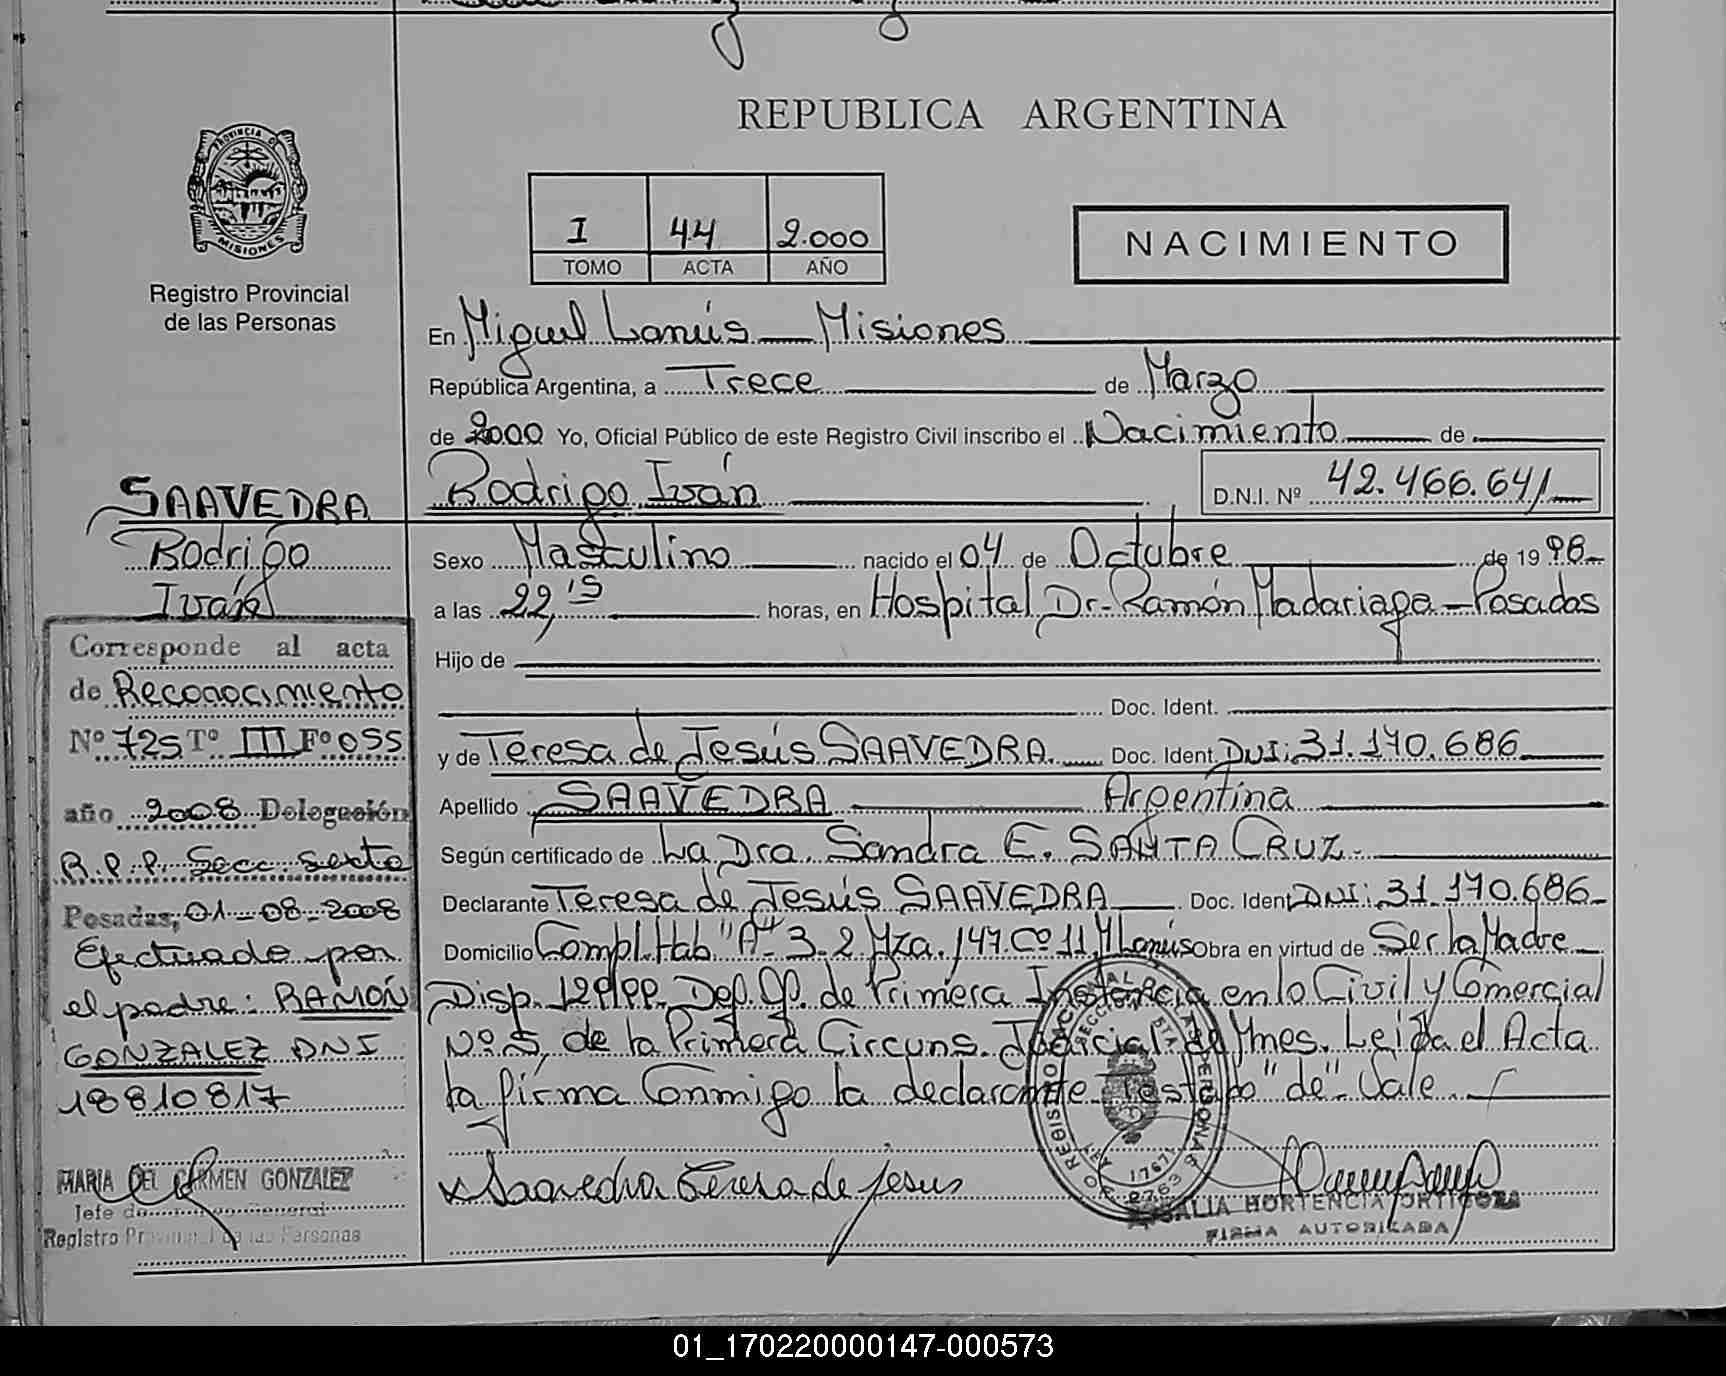 REPUBLICA ARGENTINA
PROVINCIA DE
MISIONES
Registro Provincial
de las Personas
I 44 2.000
TOMO ACTA AÑO
NACIMIENTO
En Miguel Lanús — Misiones
República Argentina, a Trece de Marzo
de 2000 Yo, Oficial Público de este Registro Civil inscribo el Nacimiento de
Rodrigo Iván
D.N.I. Nº 42.466.641
Sexo Masculino nacido el 04 de Octubre de 19 98
a las 22,15 horas, en Hospital Dr. Ramón Madariaga - Posadas
Hijo de
Doc. Ident.
y de Teresa de Jesús SAAVEDRA Doc. Ident. DNI: 31.170.686
Apellido SAAVEDRA Argentina
Según certificado de La Dra. Sandra E. SANTA CRUZ.
Declarante Teresa de Jesús SAAVEDRA Doc. Ident. DNI: 31.170.686
Domicilio Compl. Hab "A" 3.2 Mza. 147. Cº 11, M Lanús Obra en virtud de Ser la Madre
Disp. de Primera Instancia en lo Civil y Comercial
Nº 5, de la Primera Circuns. Judicial de Mnes. Leída el Acta
la firma Conmigo la declarante Testado "de" Vale
x Saavedra Teresa de Jesus
ROSALIA HORTENCIA ORTIGOZA
FIRMA AUTORIZADA
REGISTRO NACIONAL DE LAS PERSONAS
SECCION
LEY 17671
SAAVEDRA
Rodrigo
Iván
Corresponde al acta
de Reconocimiento
Nº 725 Tº III Fº 055
año 2008 Delegación
R.P.P. Secc. Sexta
Posadas, 01-08-2008
Efectuado por
el padre: RAMÓN
GONZALEZ DNI
18810817
MARIA DEL CARMEN GONZALEZ
Jefe
Registro Provincial de las Personas
01_170220000147-000573